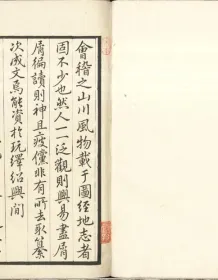 會稽之山川風物載于圖經地志者
固不少也然人一一泛觀則興易盡屑
屑徧讀則神且疲儻非有所去取纂
次成文焉能資於玩繹紹興間